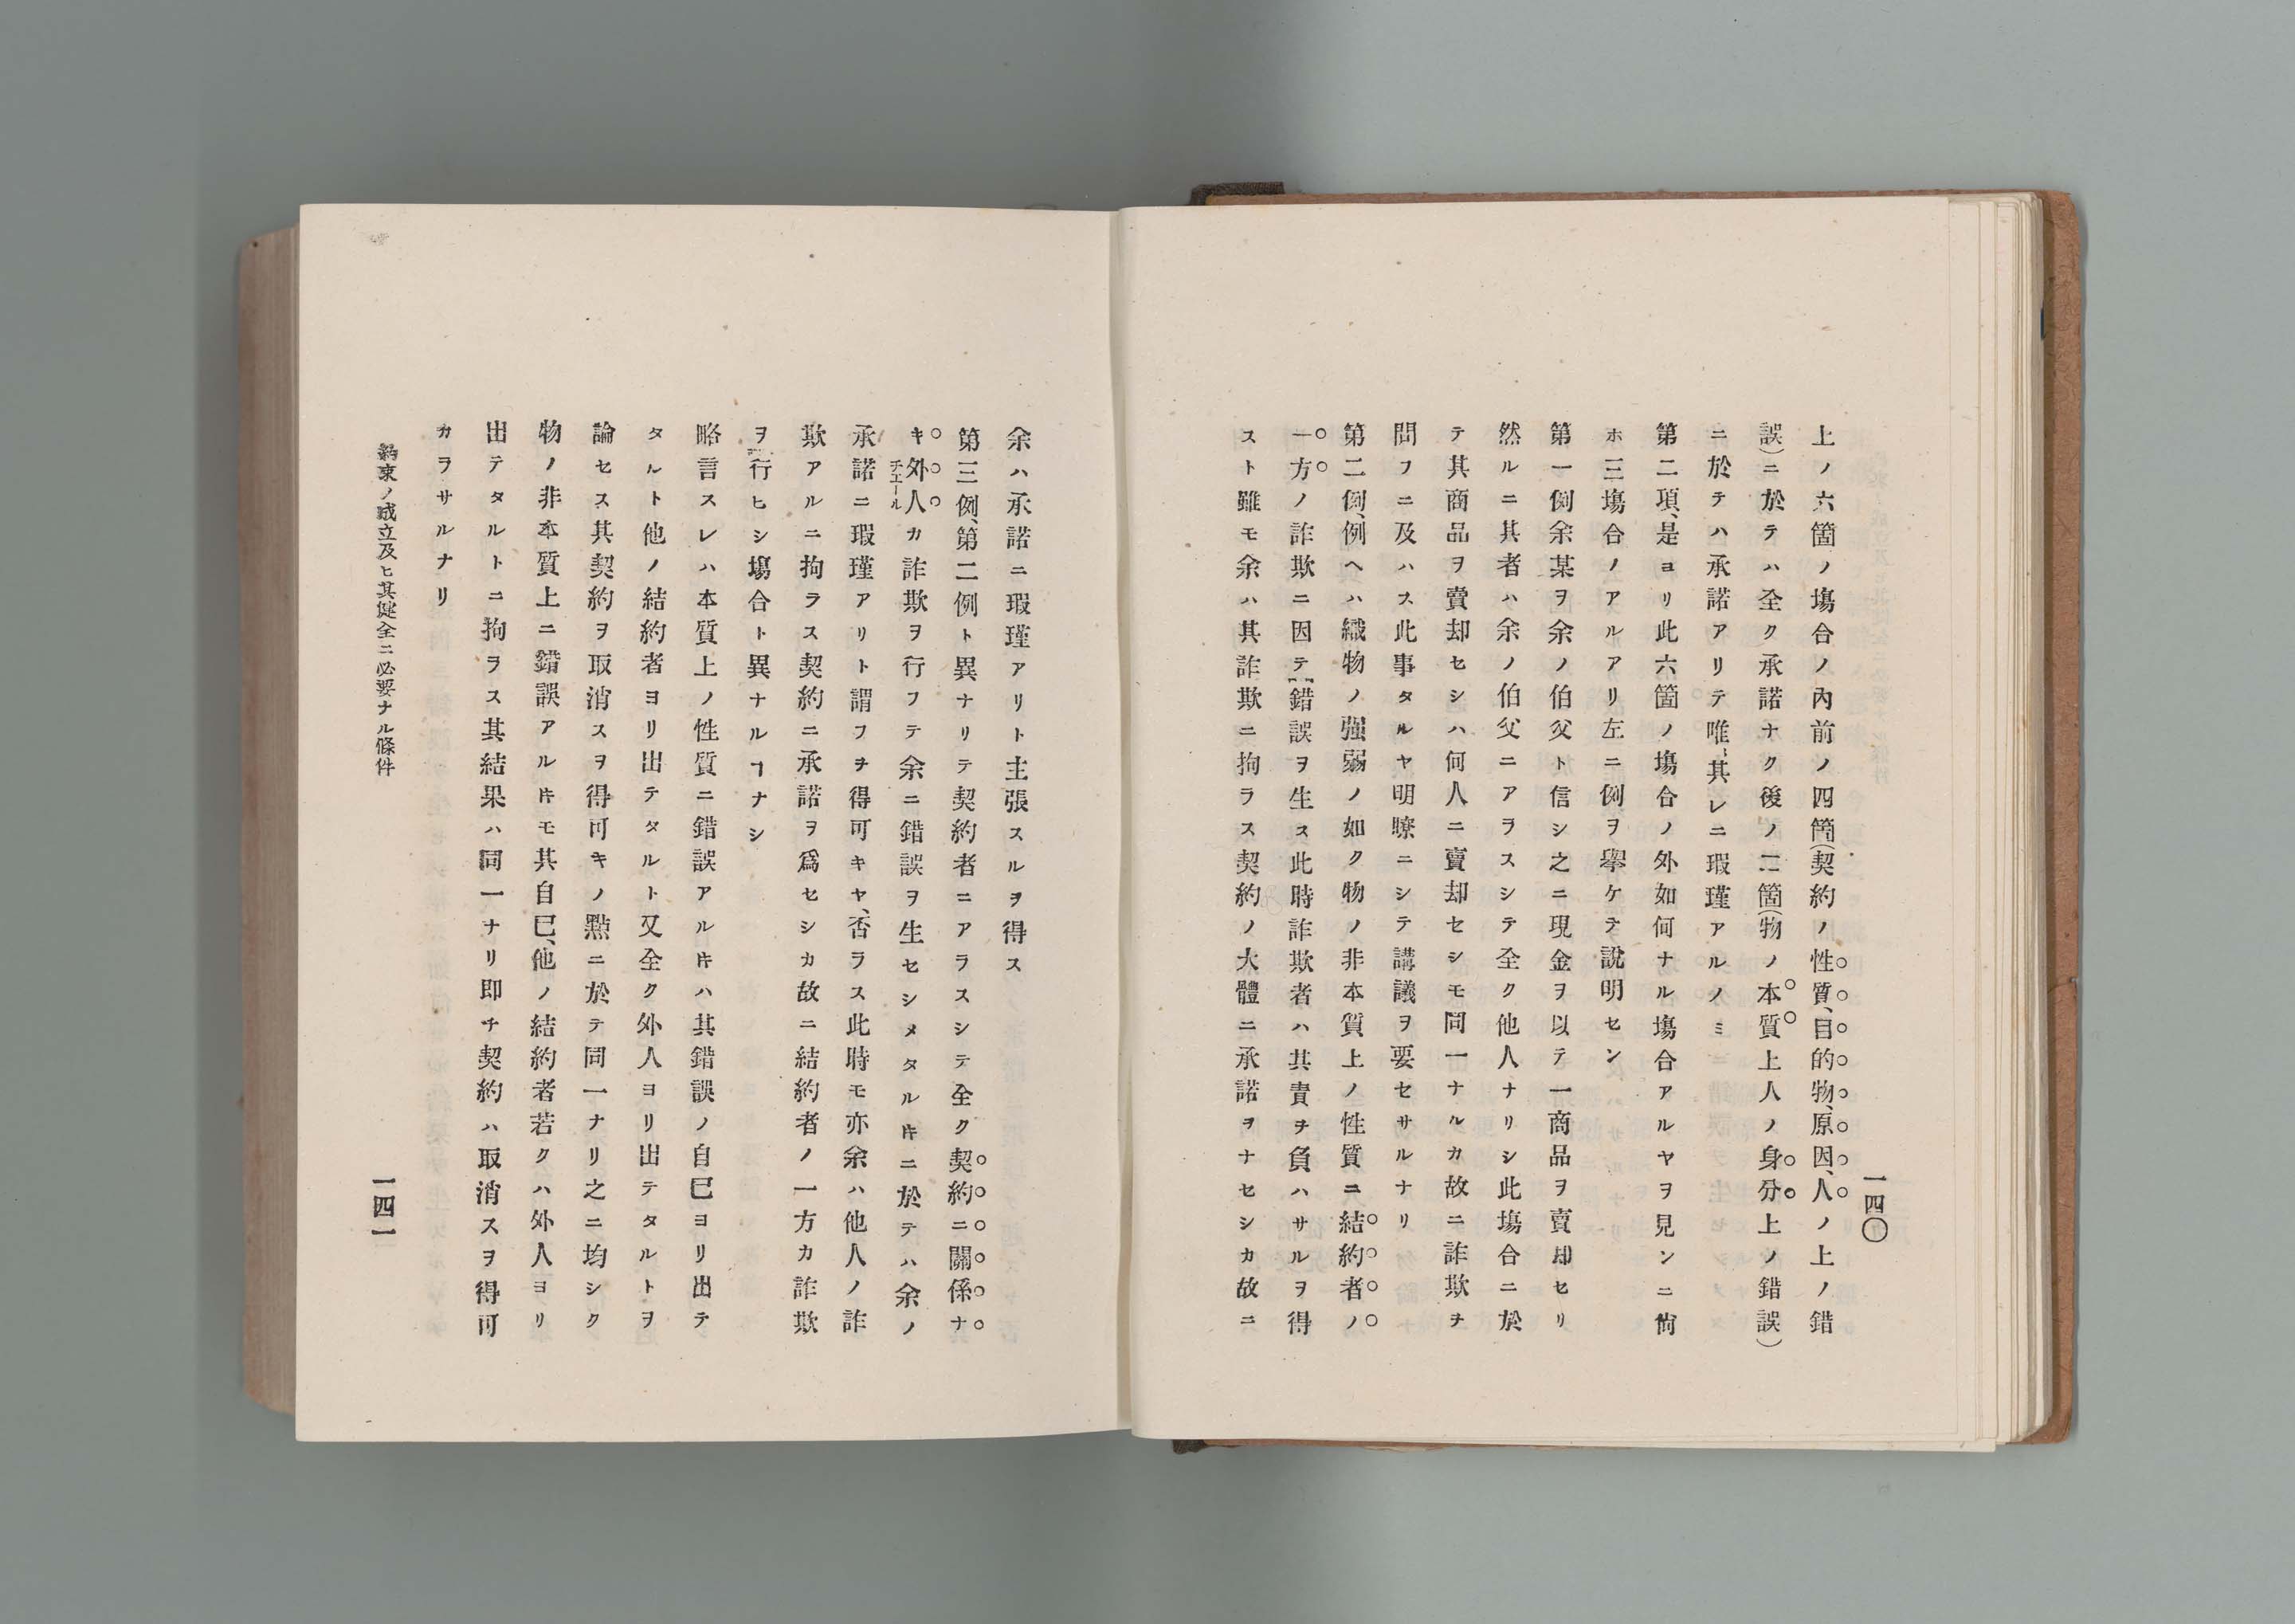 一四〇
上ノ六箇ノ塲合ノ內前ノ四箇(契約ノ性質、目的物、原因、人ノ上ノ錯
誤)ニ於テハ全ク承諾ナク後ノ二箇(物ノ本質上人ノ身分上ノ錯誤)
ニ於テハ承諾アリテ唯、其レニ瑕瑾アルノミ
第二項、是ヨリ此六箇ノ塲合ノ外如何ナル塲合アルヤヲ見ンニ尙
ホ三塲合ノアルアリ左ニ例ヲ擧ケテ說明セン
第一例余某ヲ余ノ伯父ト信シ之ニ現金ヲ以テ一商品ヲ賣却セリ
然ルニ其者ハ余ノ伯父ニアラスシテ全ク他人ナリシ此塲合ニ於
テ其商品ヲ賣却セシハ何人ニ賣却セシモ同一ナルカ故ニ詐欺ヲ
問フニ及ハス此事タルヤ明瞭ニシテ講議ヲ要セサルナリ
第二例、例ヘハ織物ノ强弱ノ如ク物ノ非本質上ノ性質ニ結約者ノ
一方ノ詐欺ニ因テ錯誤ヲ生ス此時詐欺者ハ其責ヲ負ハサルヲ得
スト雖モ余ハ其詐欺ニ拘ラス契約ノ大體ニ承諾ヲナセシカ故ニ
余ハ承諾ニ瑕瑾アリト主張スルヲ得ス
第三例、第二例ト異ナリテ契約者ニアラスシテ全ク契約ニ關係ナ
キ外人カ詐欺ヲ行フテ余ニ錯誤ヲ生セシメタル𪜈ニ於テハ余ノ
チエール
承諾ニ瑕瑾アリト謂フヲ得可キヤ、否ラス此時モ亦余ハ他人ノ詐
欺アルニ拘ラス契約ニ承諾ヲ爲セシカ故ニ結約者ノ一方カ詐欺
ヲ行ヒシ塲合ト異ナルヿナシ
略言スレハ本質上ノ性質ニ錯誤アル𪜈ハ其錯誤ノ自已ヨリ出テ
タルト他ノ結約者ヨリ出テタルト又全ク外人ヨリ出テタルトヲ
論セス其契約ヲ取消スヲ得可キノ點ニ於テ同一ナリ之ニ均シク
物ノ非本質上ニ錯誤アル𪜈モ其自已、他ノ結約者若クハ外人ヨリ
出テタルトニ拘ラス其結果ハ同一ナリ即チ契約ハ取消スヲ得可
カラサルナリ
約束ノ成立及ヒ其健全ニ必要ナル條件
一四一